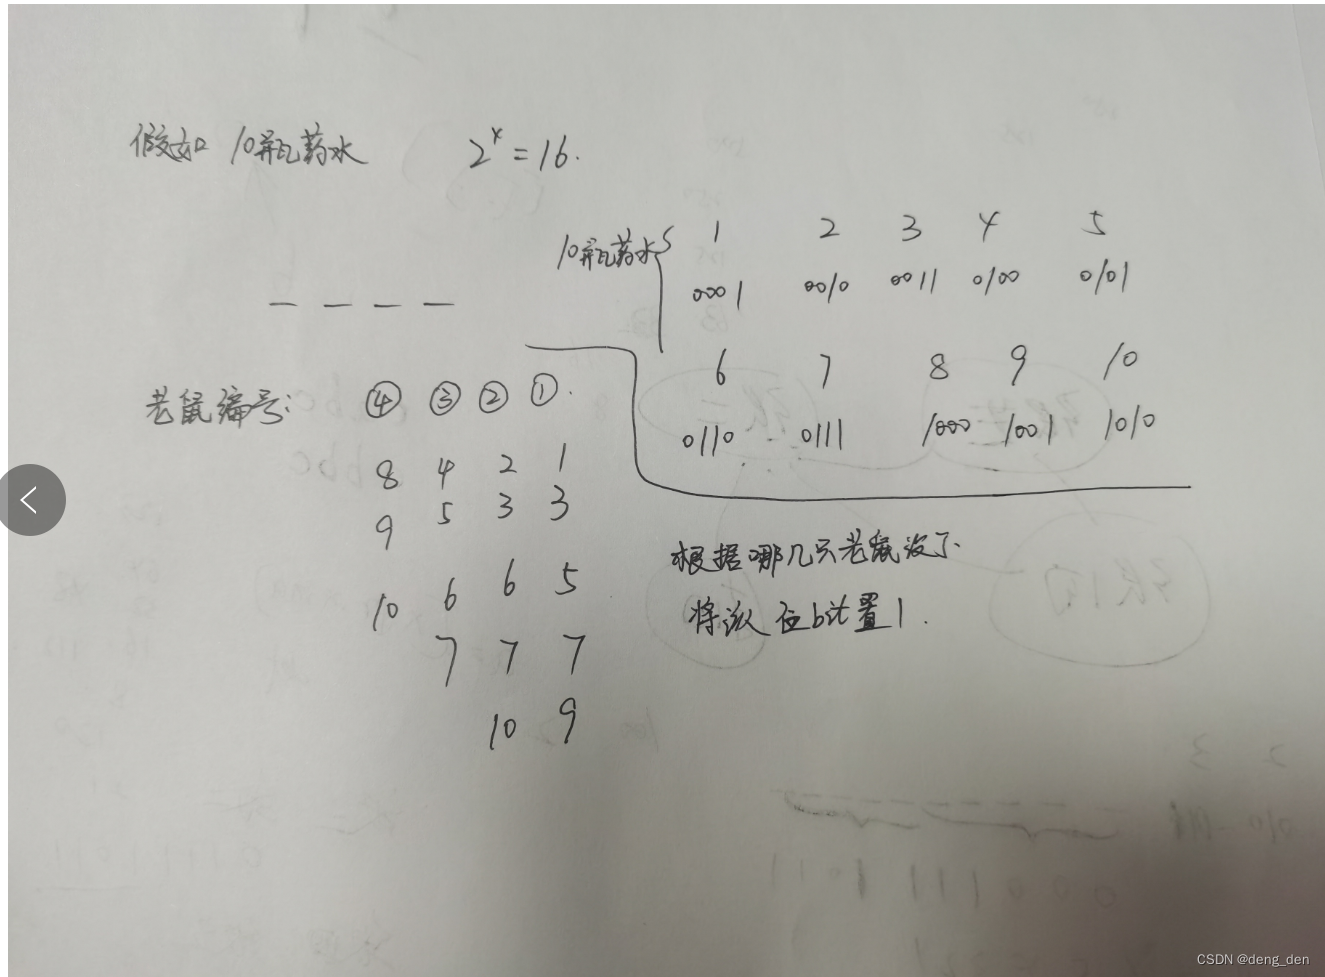 假如 10瓶药水 2⁴=16.
10瓶药水 1 2 3 4 5
0001 0010 0011 0100 0101
6 7 8 9 10
0110 0111 1000 1001 1010
老鼠编号: ④ ③ ② ①.
8 4 2 1
9 5 3 3
10 6 6 5
7 7 7
10 9
根据哪几只老鼠没了
将该位bit置1.
CSDN @deng_den